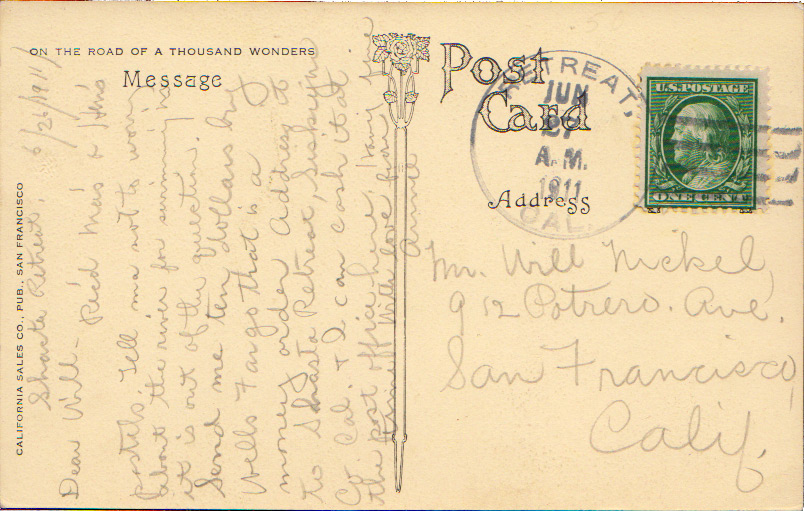 ON THE ROAD OF A THOUSAND WONDERS
Message
CALIFORNIA SALES CO., PUB., SAN FRANCISCO
Shasta Retreat, 6/26/1911/
Dear Will- Rec'd Ma's &
postals. Tell ma not to worry
about the river for swimming in
it is out of the question.
Send me ten dollars by
Wells Fargo that is a
money order Address to
to Shasta Retreat, Siskiyou
Co. Cal. & I can cash it at
the post office here.
With love
Post
Card
RETREAT,
JUN
27
A.M.
1911
CAL.
U.S. POSTAGE
ONE CENT
Address
Mr. Will Nickel,
912 Potrero. Ave.
San Francisco,
Calif.